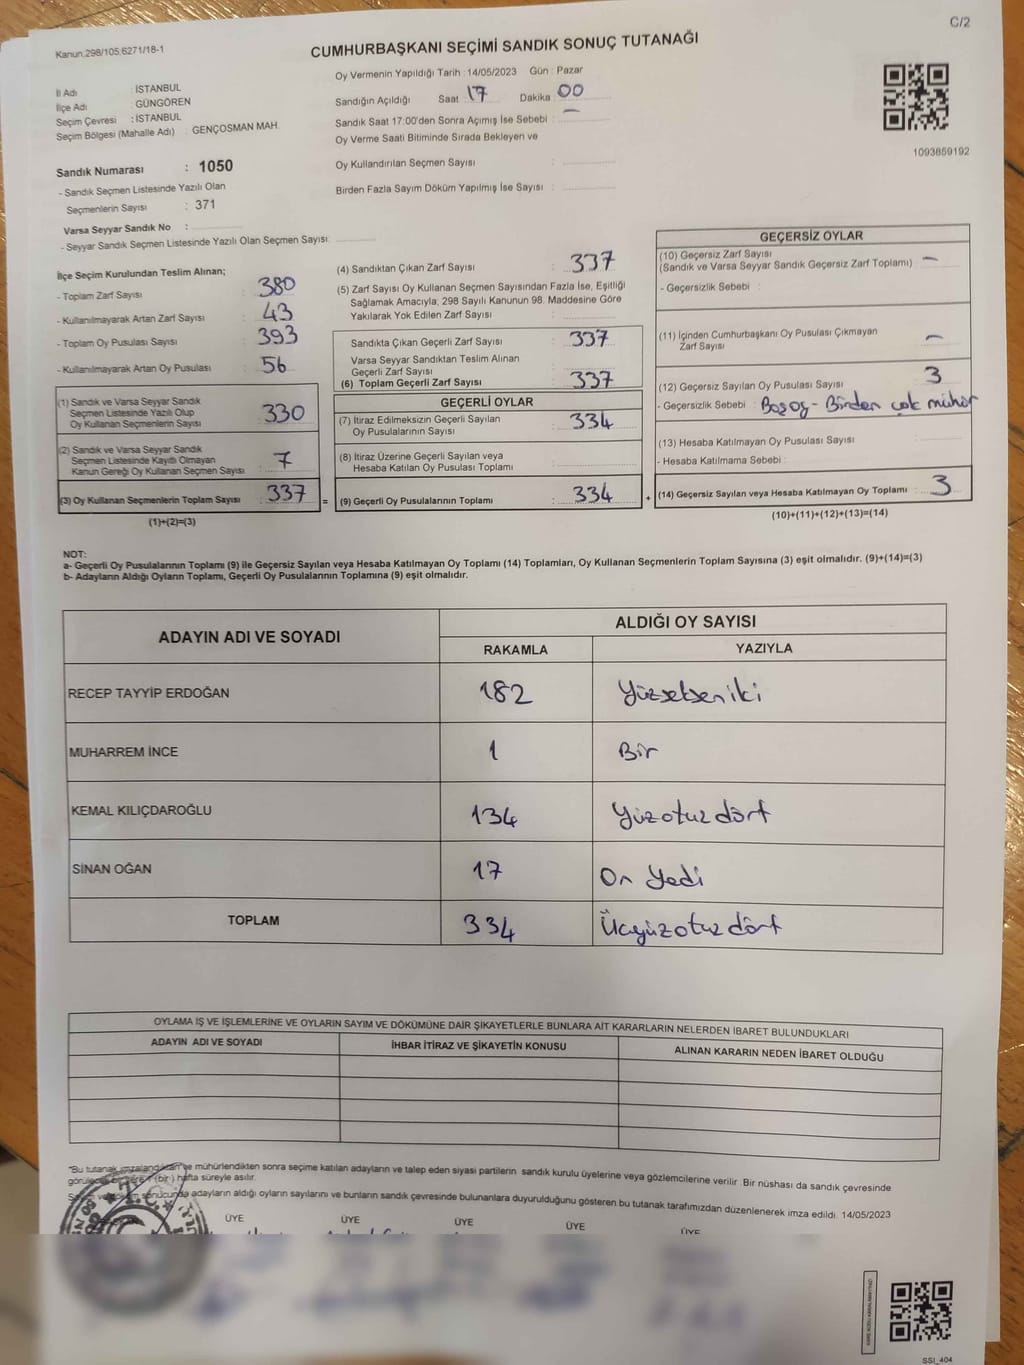 C/2
Kanun:298/105,6271/18-1
CUMHURBAŞKANI SEÇİMİ SANDIK SONUÇ TUTANAĞI
İl Adı : İSTANBUL
İlçe Adı : GÜNGÖREN
Seçim Çevresi : İSTANBUL
Seçim Bölgesi (Mahalle Adı) : GENÇOSMAN MAH.
Oy Vermenin Yapıldığı Tarih : 14/05/2023 Gün : Pazar
Sandığın Açıldığı Saat 17 Dakika 00
Sandık Saat 17:00'den Sonra Açımış İse Sebebi : —
Oy Verme Saati Bitiminde Sırada Bekleyen ve
Oy Kullandırılan Seçmen Sayısı :
Birden Fazla Sayım Döküm Yapılmış İse Sayısı :
1093859192
Sandık Numarası : 1050
- Sandık Seçmen Listesinde Yazılı Olan
Seçmenlerin Sayısı : 371
Varsa Seyyar Sandık No :
- Seyyar Sandık Seçmen Listesinde Yazılı Olan Seçmen Sayısı:
İlçe Seçim Kurulundan Teslim Alınan;
- Toplam Zarf Sayısı : 380
- Kullanılmayarak Artan Zarf Sayısı : 43
- Toplam Oy Pusulası Sayısı : 393
- Kullanılmayarak Artan Oy Pusulası : 56
(1) Sandık ve Varsa Seyyar Sandık
Seçmen Listesinde Yazılı Olup
Oy Kullanan Seçmenlerin Sayısı : 330
(2) Sandık ve Varsa Seyyar Sandık
Seçmen Listesinde Kayıtlı Olmayan
Kanun Gereği Oy Kullanan Seçmen Sayısı : 7
(3) Oy Kullanan Seçmenlerin Toplam Sayısı : 337
(1)+(2)=(3)
(4) Sandıktan Çıkan Zarf Sayısı : 337
(5) Zarf Sayısı Oy Kullanan Seçmen Sayısından Fazla İse, Eşitliği
Sağlamak Amacıyla, 298 Sayılı Kanunun 98. Maddesine Göre
Yakılarak Yok Edilen Zarf Sayısı :
Sandıkta Çıkan Geçerli Zarf Sayısı : 337
Varsa Seyyar Sandıktan Teslim Alınan
Geçerli Zarf Sayısı :
(6) Toplam Geçerli Zarf Sayısı : 337
GEÇERLİ OYLAR
(7) İtiraz Edilmeksizin Geçerli Sayılan
Oy Pusulalarının Sayısı : 334
(8) İtiraz Üzerine Geçerli Sayılan veya
Hesaba Katılan Oy Pusulası Toplamı :
= (9) Geçerli Oy Pusulalarının Toplamı : 334 +
GEÇERSİZ OYLAR
(10) Geçersiz Zarf Sayısı
(Sandık ve Varsa Seyyar Sandık Geçersiz Zarf Toplamı) : —
- Geçersizlik Sebebi :
(11) İçinden Cumhurbaşkanı Oy Pusulası Çıkmayan
Zarf Sayısı : —
(12) Geçersiz Sayılan Oy Pusulası Sayısı : 3
- Geçersizlik Sebebi : Boşoy - Birden çok mühür
(13) Hesaba Katılmayan Oy Pusulası Sayısı :
- Hesaba Katılmama Sebebi :
(14) Geçersiz Sayılan veya Hesaba Katılmayan Oy Toplamı : 3
(10)+(11)+(12)+(13)=(14)
NOT:
a- Geçerli Oy Pusulalarının Toplamı (9) ile Geçersiz Sayılan veya Hesaba Katılmayan Oy Toplamı (14) Toplamları, Oy Kullanan Seçmenlerin Toplam Sayısına (3) eşit olmalıdır. (9)+(14)=(3)
b- Adayların Aldığı Oyların Toplamı, Geçerli Oy Pusulalarının Toplamına (9) eşit olmalıdır.
ADAYIN ADI VE SOYADI ALDIĞI OY SAYISI
RAKAMLA YAZIYLA
RECEP TAYYİP ERDOĞAN 182 Yüzseksen iki
MUHARREM İNCE 1 Bir
KEMAL KILIÇDAROĞLU 134 Yüzotuz dört
SİNAN OĞAN 17 On Yedi
TOPLAM 334 Üçyüzotuz dört
OYLAMA İŞ VE İŞLEMLERİNE VE OYLARIN SAYIM VE DÖKÜMÜNE DAİR ŞİKAYETLERLE BUNLARA AİT KARARLARIN NELERDEN İBARET BULUNDUKLARI
ADAYIN ADI VE SOYADI İHBAR İTİRAZ VE ŞİKAYETİN KONUSU ALINAN KARARIN NEDEN İBARET OLDUĞU
"Bu tutanak imzalandıktan ve mühürlendikten sonra seçime katılan adayların ve talep eden siyasi partilerin sandık kurulu üyelerine veya gözlemcilerine verilir. Bir nüshası da sandık çevresinde
bir yere 1 (bir) hafta süreyle asılır.
sonucunda adayların aldığı oyların sayılarını ve bunların sandık çevresinde bulunanlara duyurulduğunu gösteren bu tutanak tarafımızdan düzenlenerek imza edildi. 14/05/2023
ÜYE ÜYE ÜYE ÜYE ÜYE
SSI_404